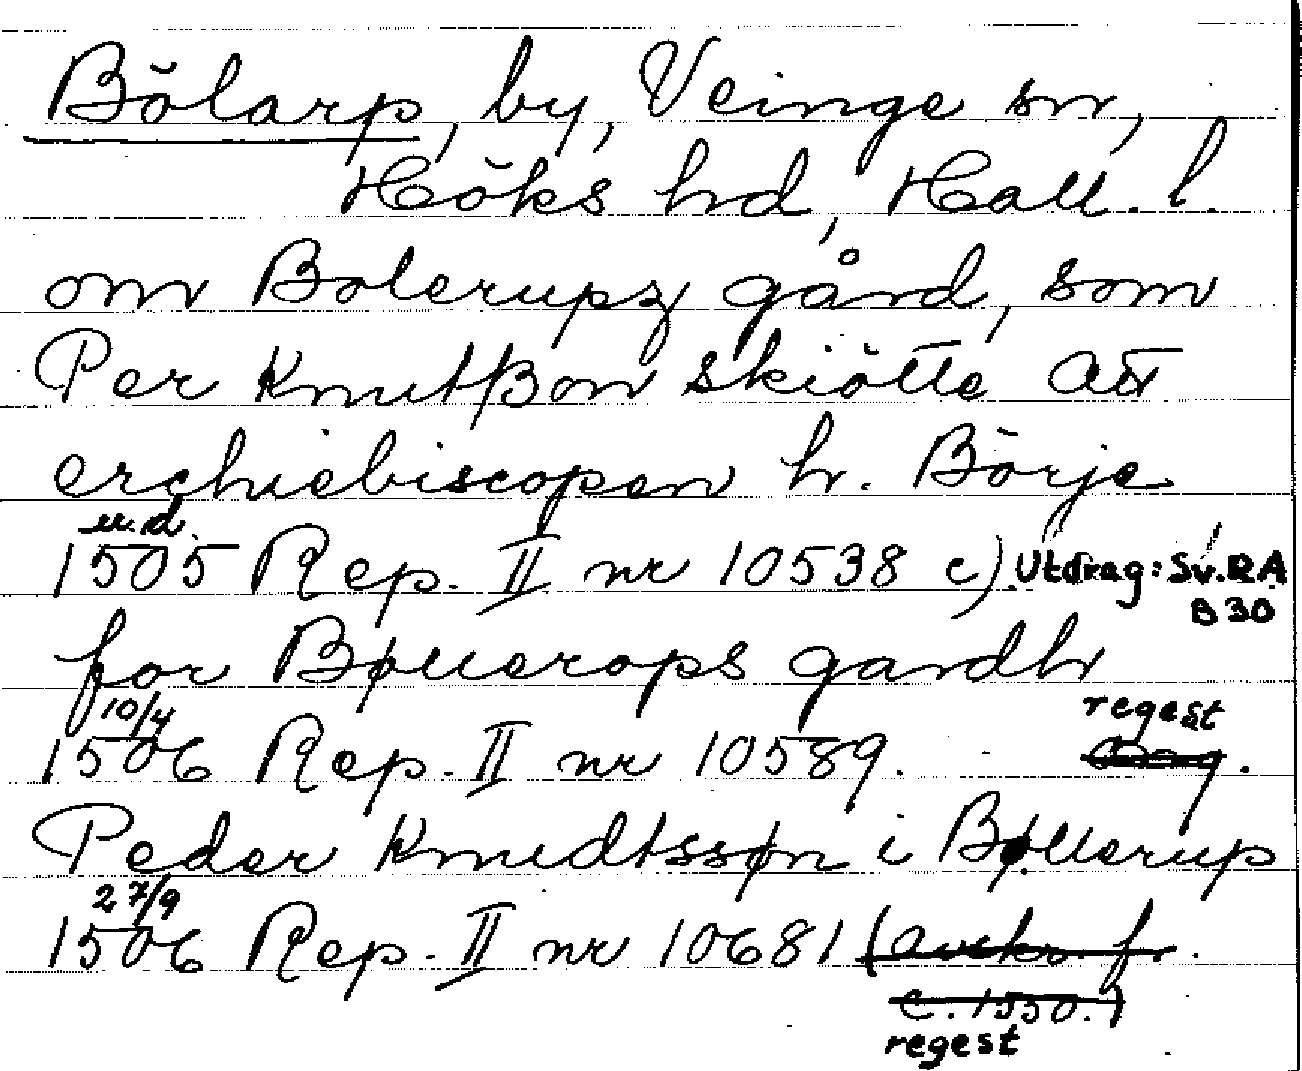 Bölarp, by, Veinge sn,
Höks hd, Hall. l.
om Bolerupz gård, som
Per Knutßon skiötte att
erchiebiscopen h. Börje
u.d.
1505 Rep. II nr 10538 c). Utdrag: Sv. RA
B 30
for Bøllerops gardh
10/4 regest
1506 Rep. II nr 10589.
Peder Knudtssøn i Bøllerup
27/9
1506 Rep. II nr 10681 (avskr. fr.
c. 1550.)
regest